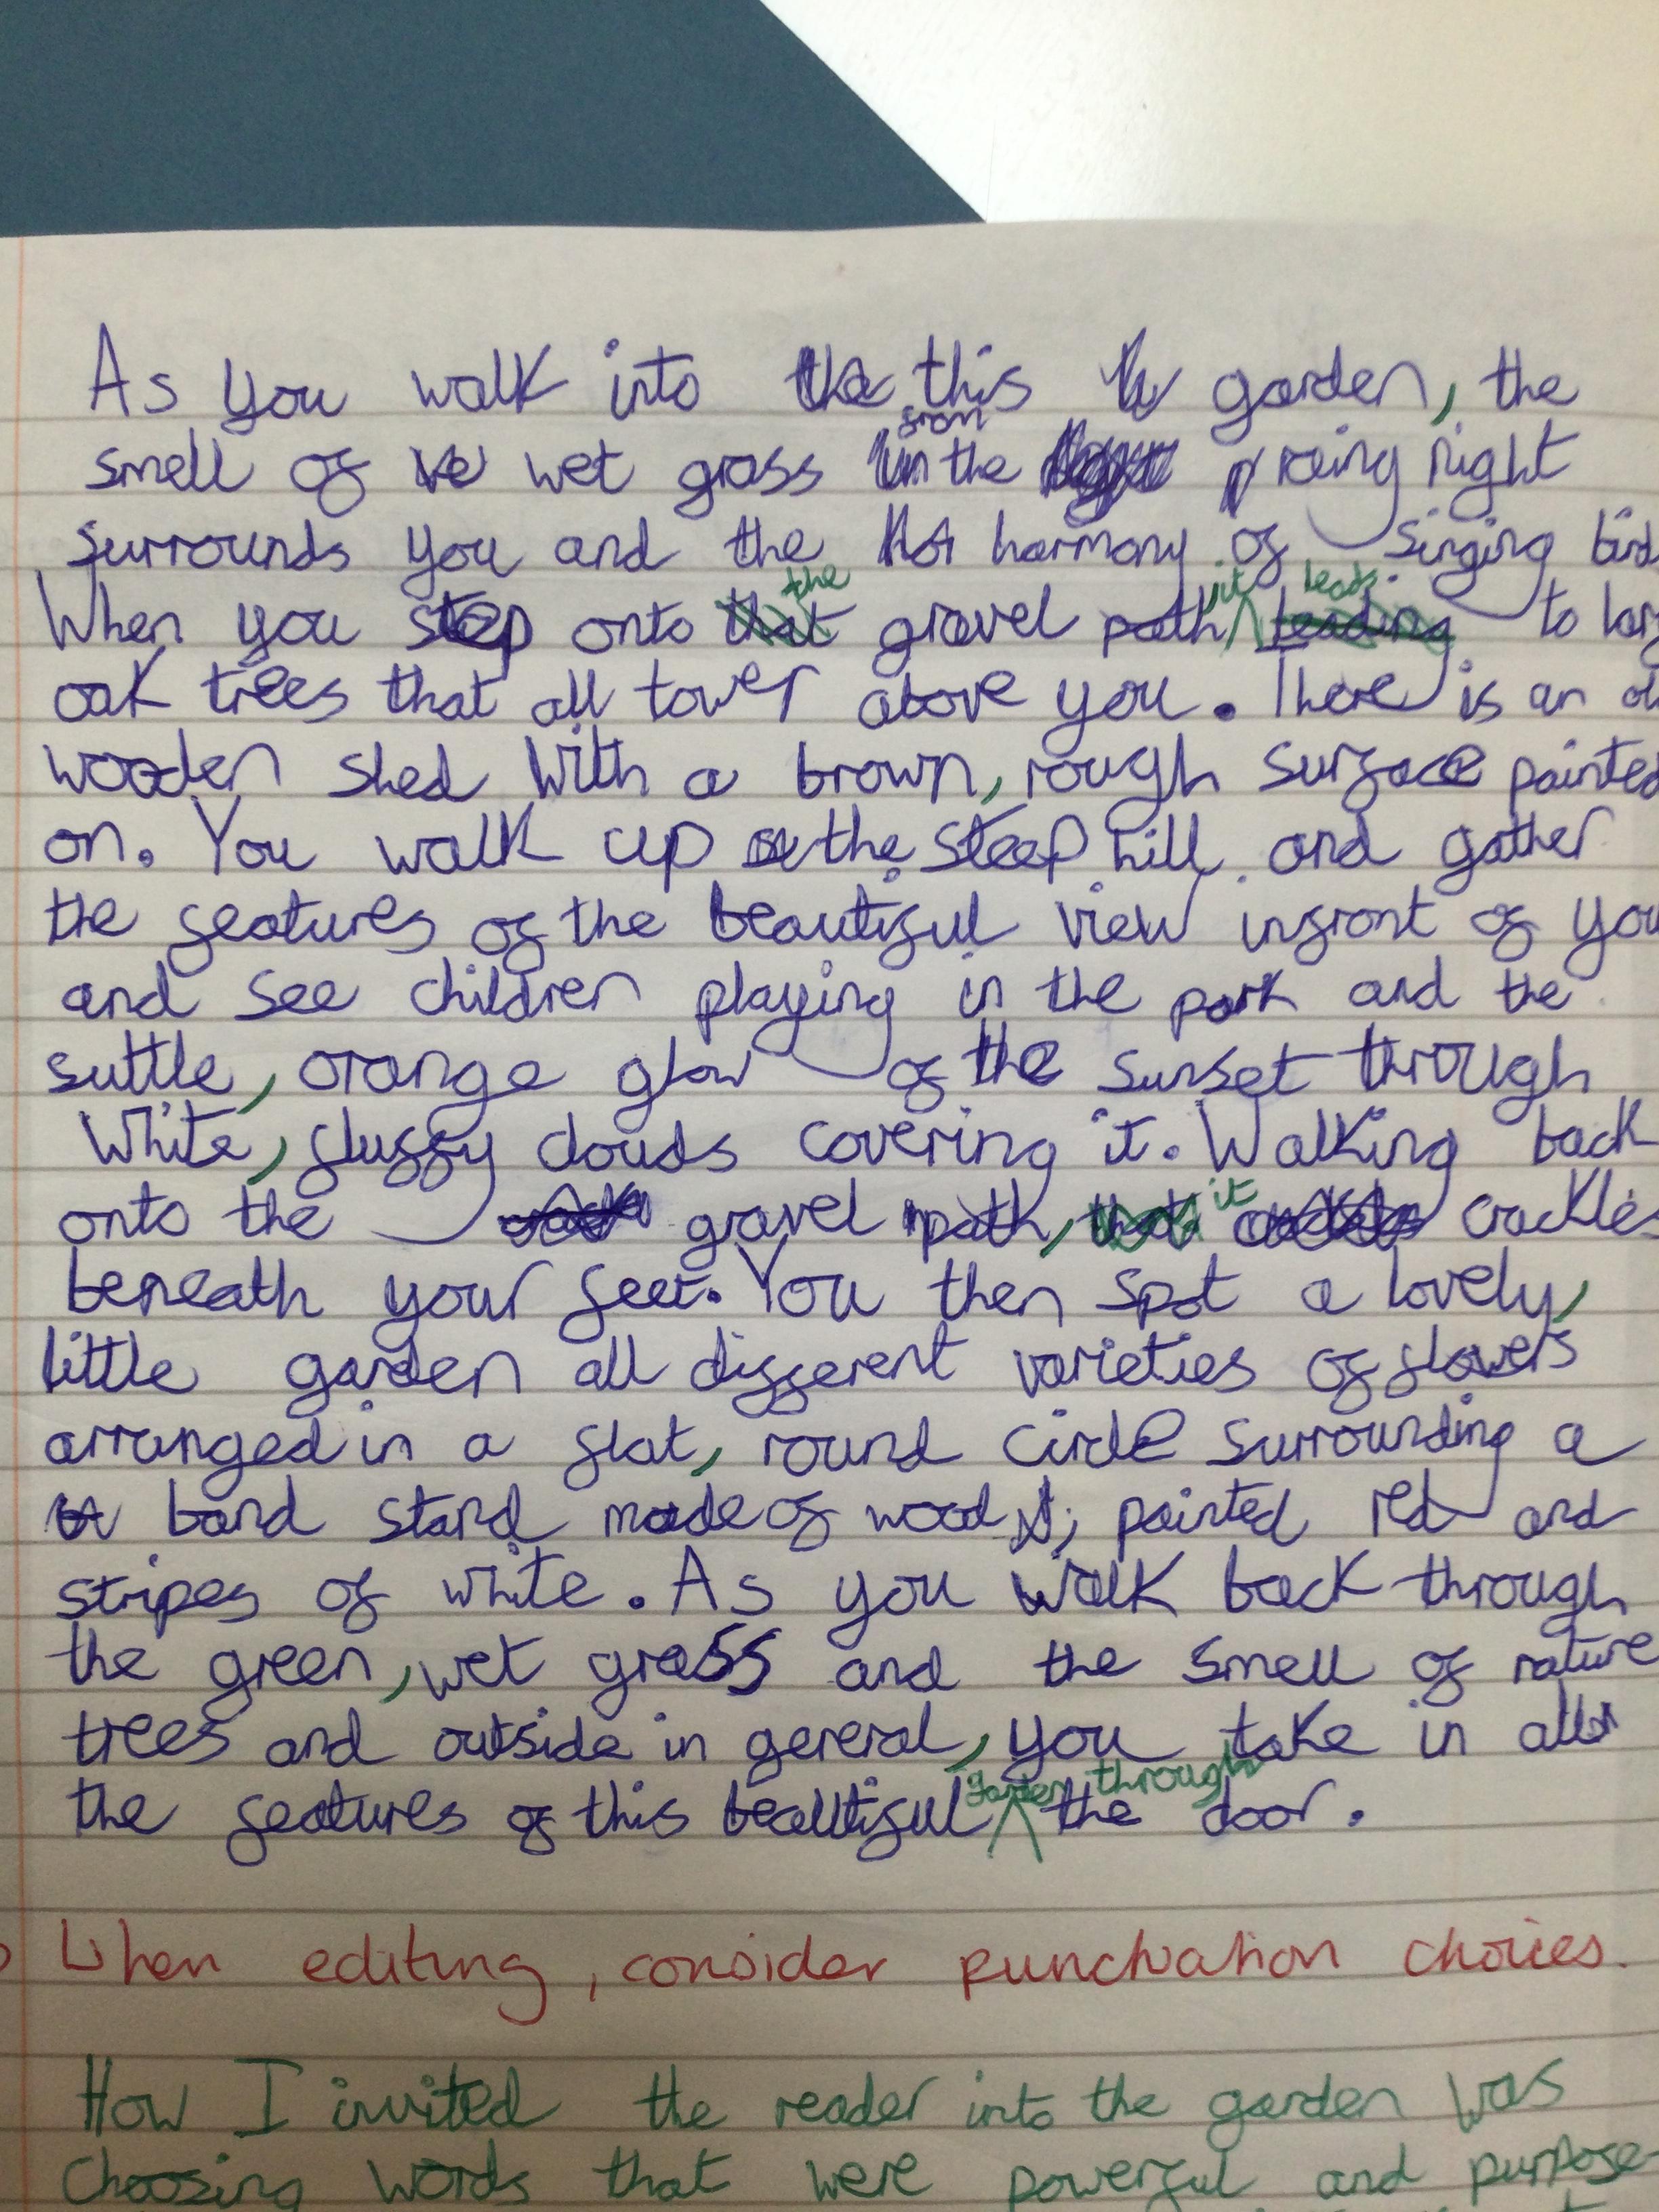 As you walk into this garden, the
smell of wet grass from the previous night
surrounds you and the harmony of singing
When you step onto the gravel path it leads to
oak trees that all tower above you. There is an
wooden shed with a brown, rough surface painted
on. You walk up the steep hill and gather
the features of the beautiful view infront of you
and see children playing in the park and the
suttle, orange glow of the sunset through
white, fluffy clouds covering it. Walking back
onto the gravel path, it crackles
beneath your feet. You then spot a lovely,
little garden all different varieties of flowers
arranged in a flat, round circle surrounding a
band stand made of wood; painted red and
stripes of white. As you walk back through
the green, wet grass and the smell of nature
trees and outside in general, you take in all
the features of this beautiful garden through the door.
When editing, consider punctuation choices.
How I invited the reader into the garden was
Choosing words that were powerful and purpose-